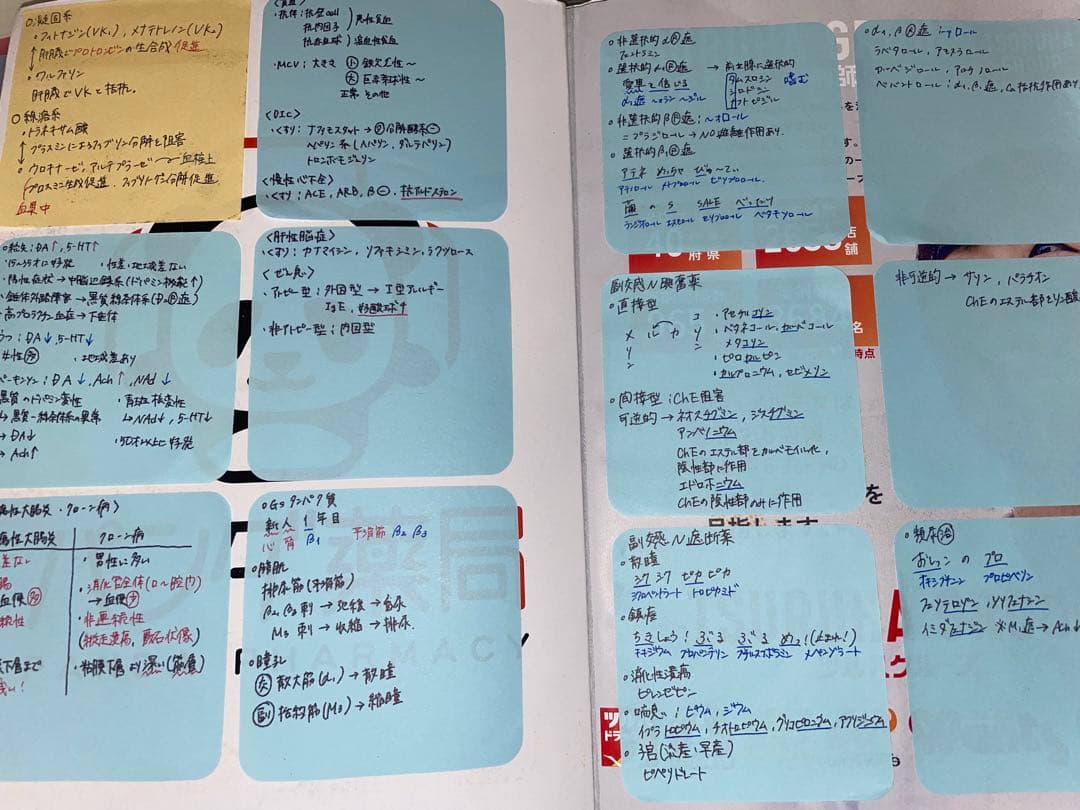 ○凝固系
・フィトナジオン(VK₁), メナテトレノン(VK₂)
肝臓でプロトロンビンの生合成促進
・ワルファリン
肝臓でVKと拮抗。
○線溶系
・トラネキサム酸
プラスミンによるフィブリン分解を阻害
・ウロキナーゼ, アルテプラーゼ
血栓上
プラスミン生成促進、フィブリノゲン分解促進
血栗中
・抗体:抗壁cell
抗内因子
悪性貧血
抗赤血球
溶血性貧血
・MCV:大きさ
小 鉄欠乏性〜
大 巨赤芽球性〜
正常 その他
<DIC>
・くすり:ナファモスタット→
分解酵素⊖
ヘパリン系(ヘパリン, ダルテパリン)
トロンボモデュリン
<慢性心不全>
・くすり:ACE, ARB, β⊖, 抗アルドステロン
DA↑, 5-HT↑
・性差・地域差なし
・陽性症状→中脳辺縁系(ドパミン機能↑)
・錐体外路障害→黒質線条体系(D₂遮)
・高プロラクチン血症→下垂体
うつ:DA↓, 5-HT↓
女性多
・地域差あり
パーキンソン:DA↓, Ach↑, NAd↓
黒質のドパミン変性
・青斑核変性
↳黒質-線条体系の異常
↳NAd↓, 5-HT↓
→DA↓
・50才以上に好発
→Ach↑
<肝性脳症>
・くすり:カナマイシン, リファキシミン, ラクツロース
<ぜん息>
・アトピー型:外因型→Ⅰ型アレルギー
IgE, 好酸球↑
・非アトピー型:内因型
潰瘍性大腸炎・クローン病>
潰瘍性大腸炎
クローン病
差なし
・男性に多い
・消化管全体(口〜肛門)
血便多
→血便少
連続性
・非連続性
(縦走潰瘍, 敷石状像)
粘膜下層まで
・粘膜下層より深い(筋層)
浅い!
○Gsタンパク質
新人1年目
心腎β₁
平滑筋 β₂ β₃
○膀胱
排尿筋(平滑筋)
β₂, β₃刺→弛緩→蓄尿
M₃刺→収縮→排尿.
○瞳孔
交 散大筋(α₁)→散瞳
副 括約筋(M₃)→縮瞳
・非選択的α遮
フェントラミン
・選択的α₁遮
→前立腺に選択的
タムスロシン
シロドシン
ナフトピジル
・非選択的β遮:〜オロール
ニプラジロール→NO遊離作用あり.
・選択的β₁遮
アテネ めっちゃ びゅ〜てぃ
アテノロール メトプロロール ビソプロロール.
蘭 の S SALE べったり
ランジオロール エスモロール セリプロロール ベタキソロール
・α₁, β遮
ラベタロール, アモスラロール
カルベジロール, アロチノロール
ベバントロール:α₁, β₁遮, Ca拮抗作用あり.
副交感N興奮薬
○直接型
・アセチルコリン
・ベタネコール, カルバコール
メタコリン
・ピロカルピン
・カルプロニウム, セビメリン
○間接型:ChE阻害
可逆的→ネオスチグミン, ジスチグミン
アンベノニウム
ChEのエステル部をカルバモイル化,
陰性部に作用
エドロホニウム
ChEの陰性部のみに作用
非可逆的→サリン, パラチオン
ChEのエステル部をリン酸
副交感N遮断薬
・散瞳
シク シク ピカ ピカ
シクロペントラート トロピカミド
・鎮痙
ちきしょう! ぷる ぶる めぇ!
チキジウム プロパンテリン ブチルスコポラミン メペンゾラート
・消化性潰瘍
ピレンゼピン
・喘息:ピウム, ジウム
イプラトロピウム, チオトロピウム, グリコピロニウム, アクリジニウム
・子宮(流産・早産)
ピペリドレート
・頻尿治
おしっこ の プロ
オキシブチニン プロピベリン
フェソテロジン, ソリフェナシン
イミダフェナシン
府県
店舗
時点
PHARMACY
薬局